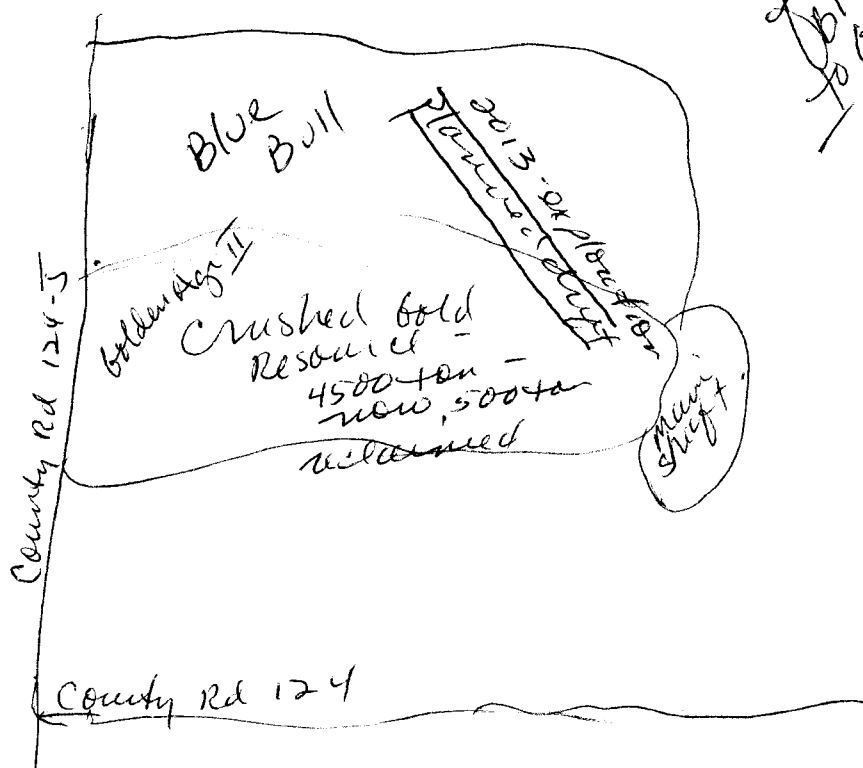 Blue
Bull
2013-exploration
planned drift
Golden Age II
Crushed Gold
Resource -
4500 ton -
now, 500 ton
reclaimed
main
shaft
County Rd 124-J
County Rd 124